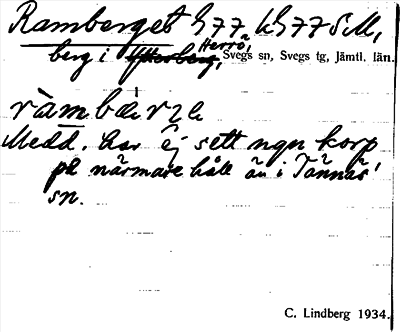 Ramberget h 77 k h 77 S M,
Herrö,
berg i Ytterberg, Svegs sn, Svegs tg, Jämtl. län.
ràmbærʒe
Medd. har ej sett ngn korp
på närmare håll än i Tännäs'
sn.
C. Lindberg 1934.